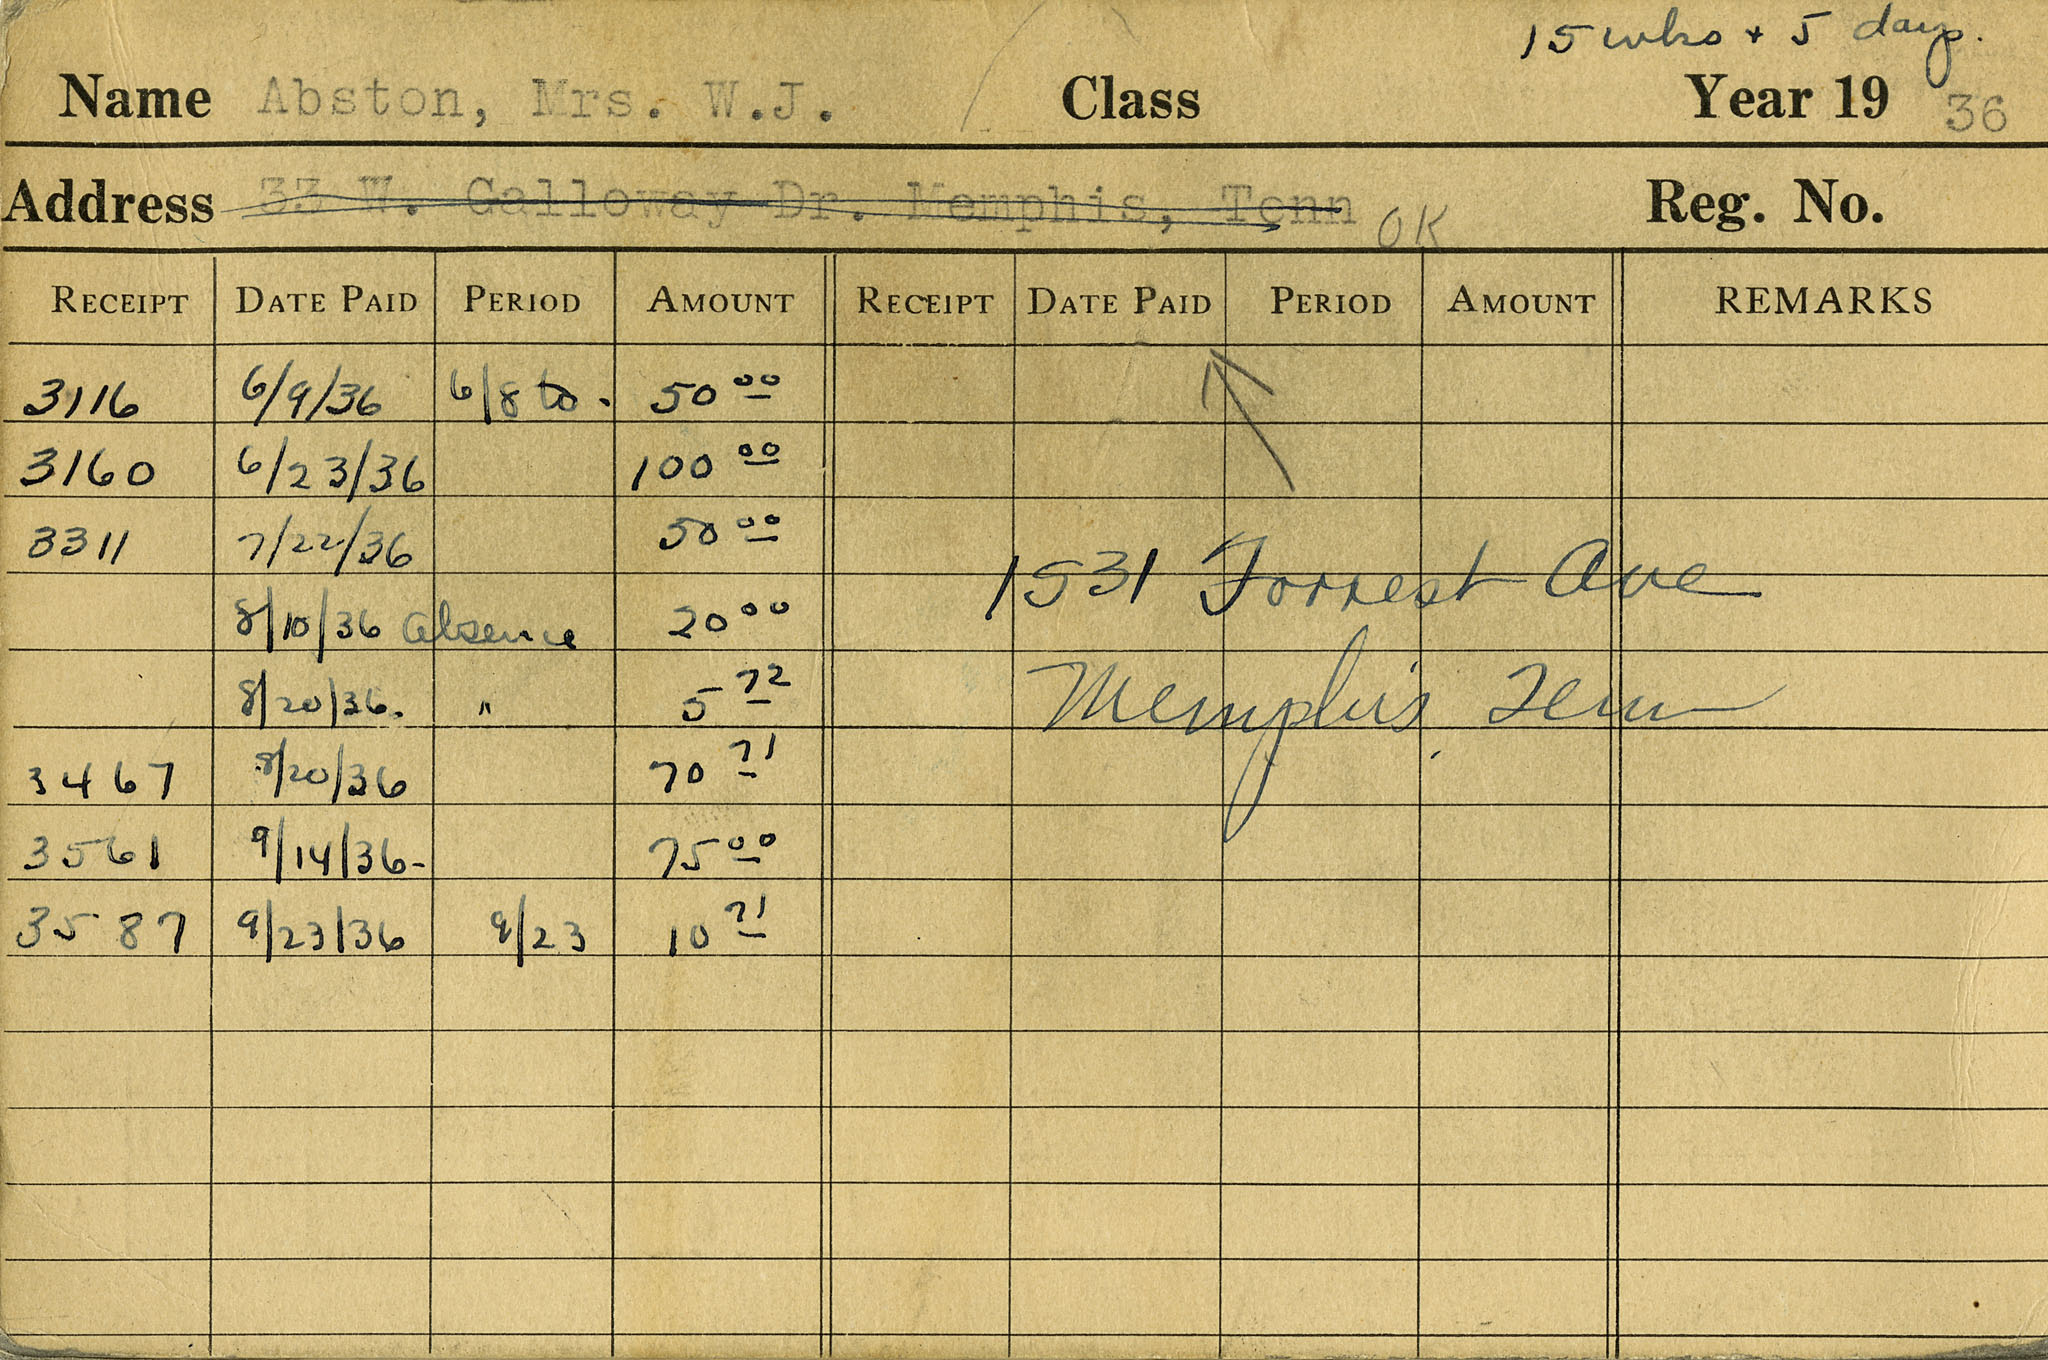 15 wks + 5 days.
Name Abston, Mrs. W.J. Class Year 19 36
Address 33 W. Galloway Dr. Memphis, Tenn OK Reg. No.
RECEIPT DATE PAID PERIOD AMOUNT RECEIPT DATE PAID PERIOD AMOUNT REMARKS
3116 6/9/36 6/8 to . 50 00
3160 6/23/36 100 00
3311 7/22/36 50 00
1531 Forrest Ave
8/10/36 absence 20 00
Memphis, Tenn
8/20/36. " 5 72
3467 8/20/36 70 71
3561 9/14/36- 75 00
3587 9/23/36 9/23 10 71